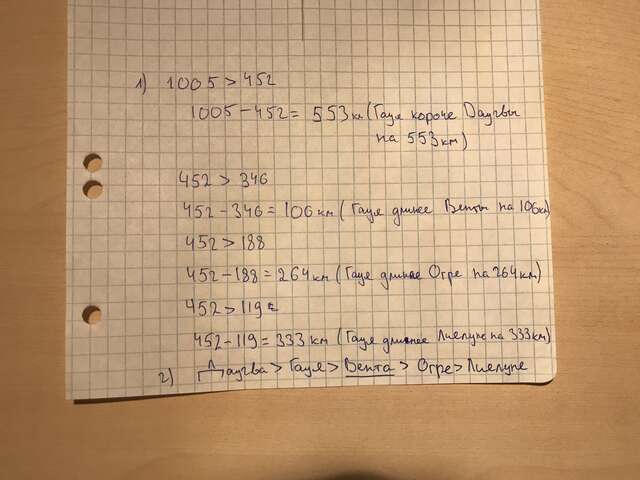 1) 1005 > 452
1005 - 452 = 553 км (Гауя короче Даугвы
на 553 км)
452 > 346
452 - 346 = 106 км (Гауя длинее Венты на 106 км)
452 > 188
452 - 188 = 264 км (Гауя длинее Огре на 264 км)
452 > 119
452 - 119 = 333 км (Гауя длинее Лиелупе на 333 км)
2) Даугва > Гауя > Вента > Огре > Лиелупе